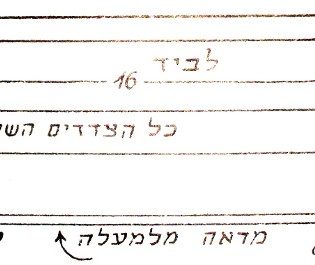 לביד
16
כל הצדדים
מדאה מלמעלה